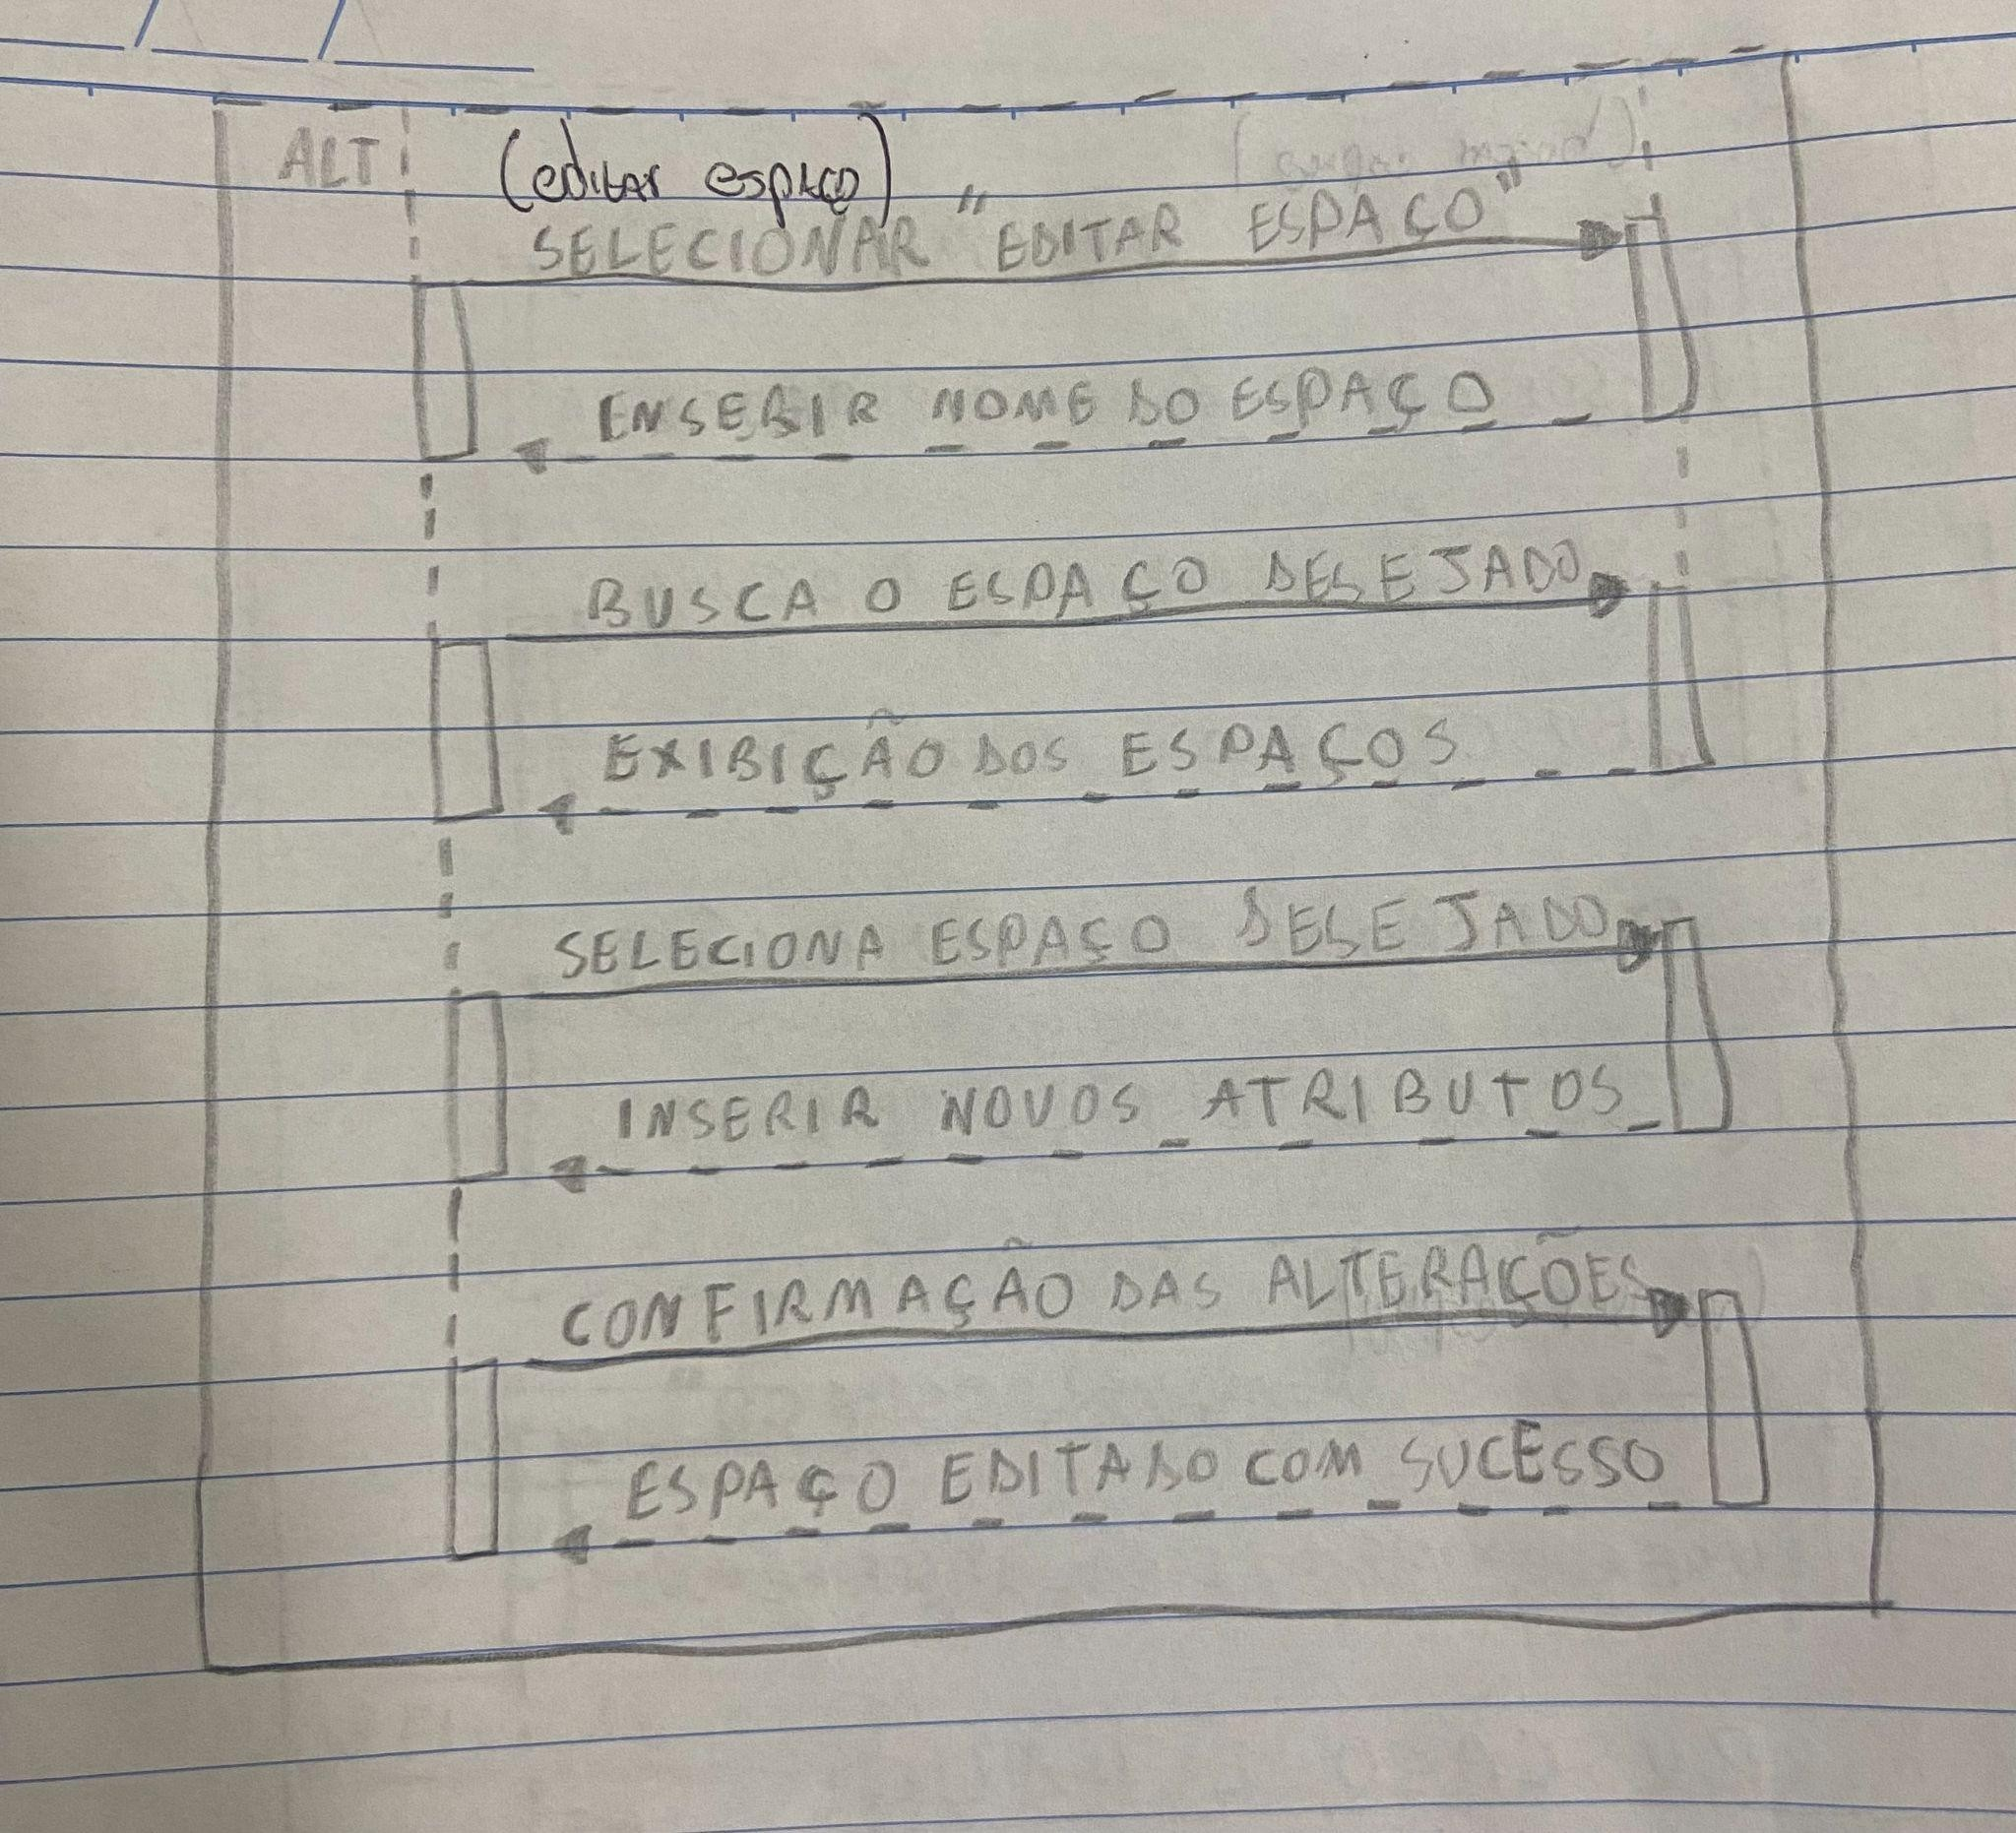 ALT
(editar espaço)
SELECIONAR "EDITAR ESPAÇO"
ENSERIR NOME DO ESPAÇO
BUSCA O ESPAÇO DESEJADO
EXIBIÇÃO DOS ESPAÇOS
SELECIONA ESPAÇO DESEJADO
INSERIR NOVOS ATRIBUTOS
CONFIRMAÇÃO DAS ALTERAÇÕES
ESPAÇO EDITADO COM SUCESSO